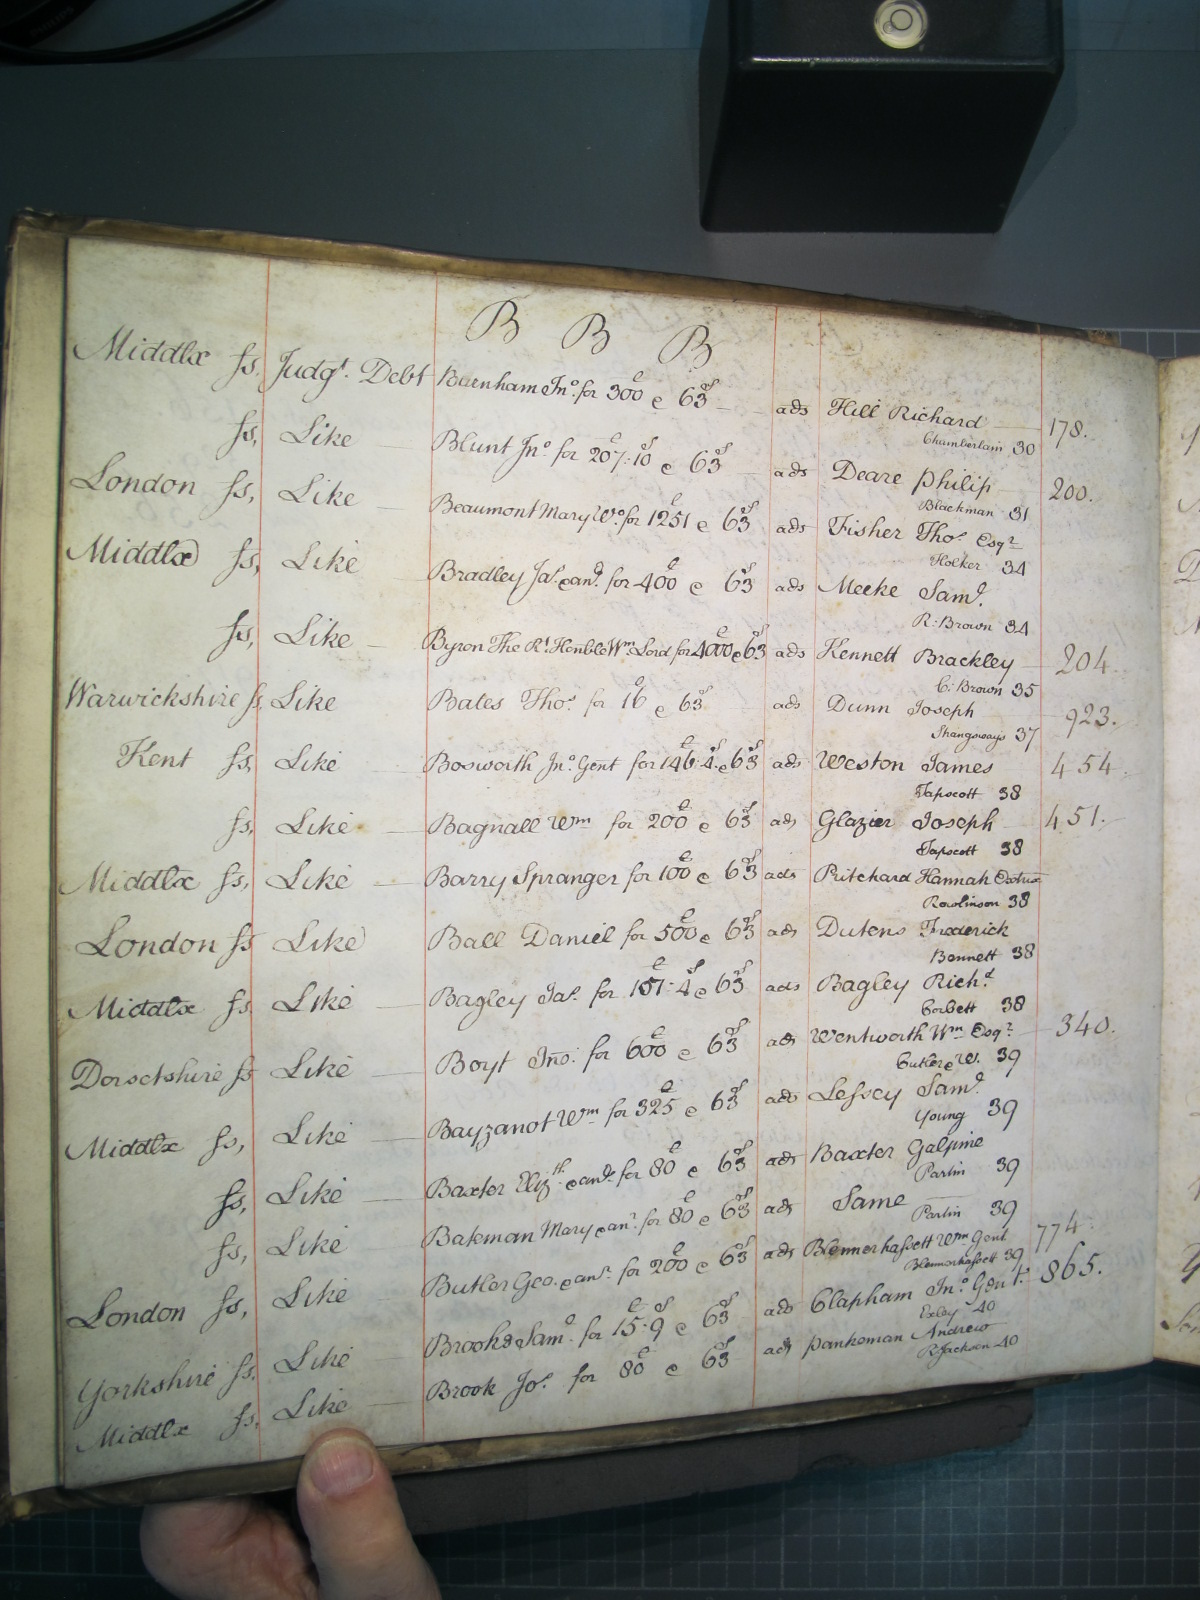 B B B
Middlx ſs, Judgt. Debt Burnham Jno. for 300£ e 63s ads Hill Richard 178.
Chamberlain 30
ſs, Like Blunt Jno. for 207£:10s e 63s ads Deare Philip 200.
Blackman 31
London ſs, Like Beaumont Mary Wo. for 1251£ e 63s ads Fisher Thos. Esqr
Holker 34
Middlx ſs, Like Bradley Jas. e anr. for 400£ e 63s ads Meeke Saml.
R: Brown 34
ſs, Like Byron The Rt. Honble Wm Lord for 4000£ e 63 ads Kennett Brackley 204.
C: Brown 35
Warwickshire ſs, Like Bates Thos. for 16£ e 63s ads Dunn Joseph 923.
37
Kent ſs, Like Bosworth Jno. Gent for 146£.4s e 63s ads Weston James 454.
Tapscott 38
ſs, Like Bagnall Wm for 200£ e 63s ads Glazier Joseph 451.
Tapscott 38
Middlx ſs, Like Barry Spranger for 100£ e 63s ads Pritchard Hannah Extrix
Rowlinson 38
London ſs Like Ball Daniel for 500£ e 63s ads Dutens Frederick
Bennett 38
Middlx ſs, Like Bagley Jas. for 157£.4s e 63s ads Bagley Richd.
Corbett 38
Dorsetshire ſs Like Boyt Jno. for 600£ e 63s ads Wentworth Wm Esqr. 340.
Butler e W. 39
Middlx ſs, Like Bayzanot Wm for 325£ e 63s ads Leſsey Saml.
Young 39
ſs, Like Baxter Elizth. e anr. for 80£ e 63s ads Baxter Galpine
Partin 39
ſs, Like Bateman Mary e anr. for 80£ e 63s ads Same
Partin 39
London ſs, Like Butler Geo. e anr. for 200£ e 63s ads Blennerhaſsett Wm Gent 774.
Blennerhaſsett 39
Yorkshire ſs. Like Brooke Saml. for 15£.9s e 63s ads Clapham Jno. Gent. 865.
Exley 40
Middlx ſs, Like Brook Jos. for 80£ e 63s ads Pankeman Andrew
R. Jackson 40